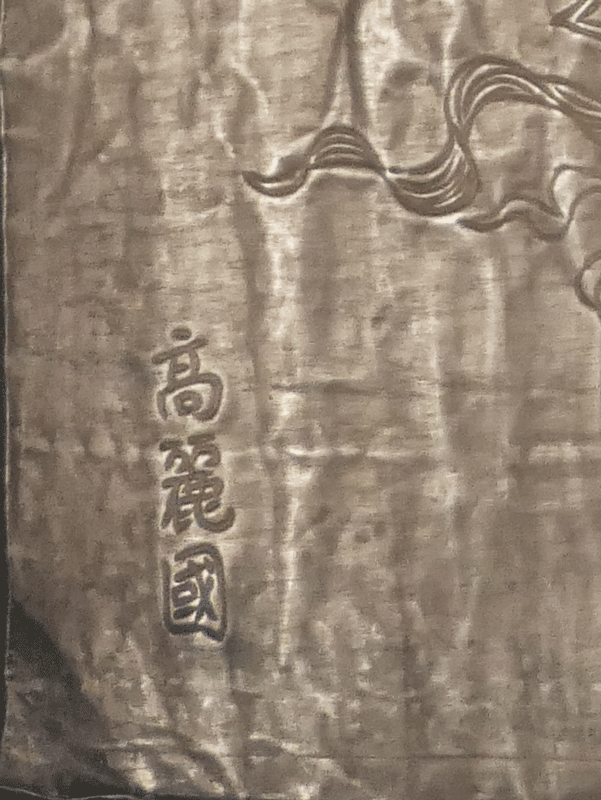 高麗國